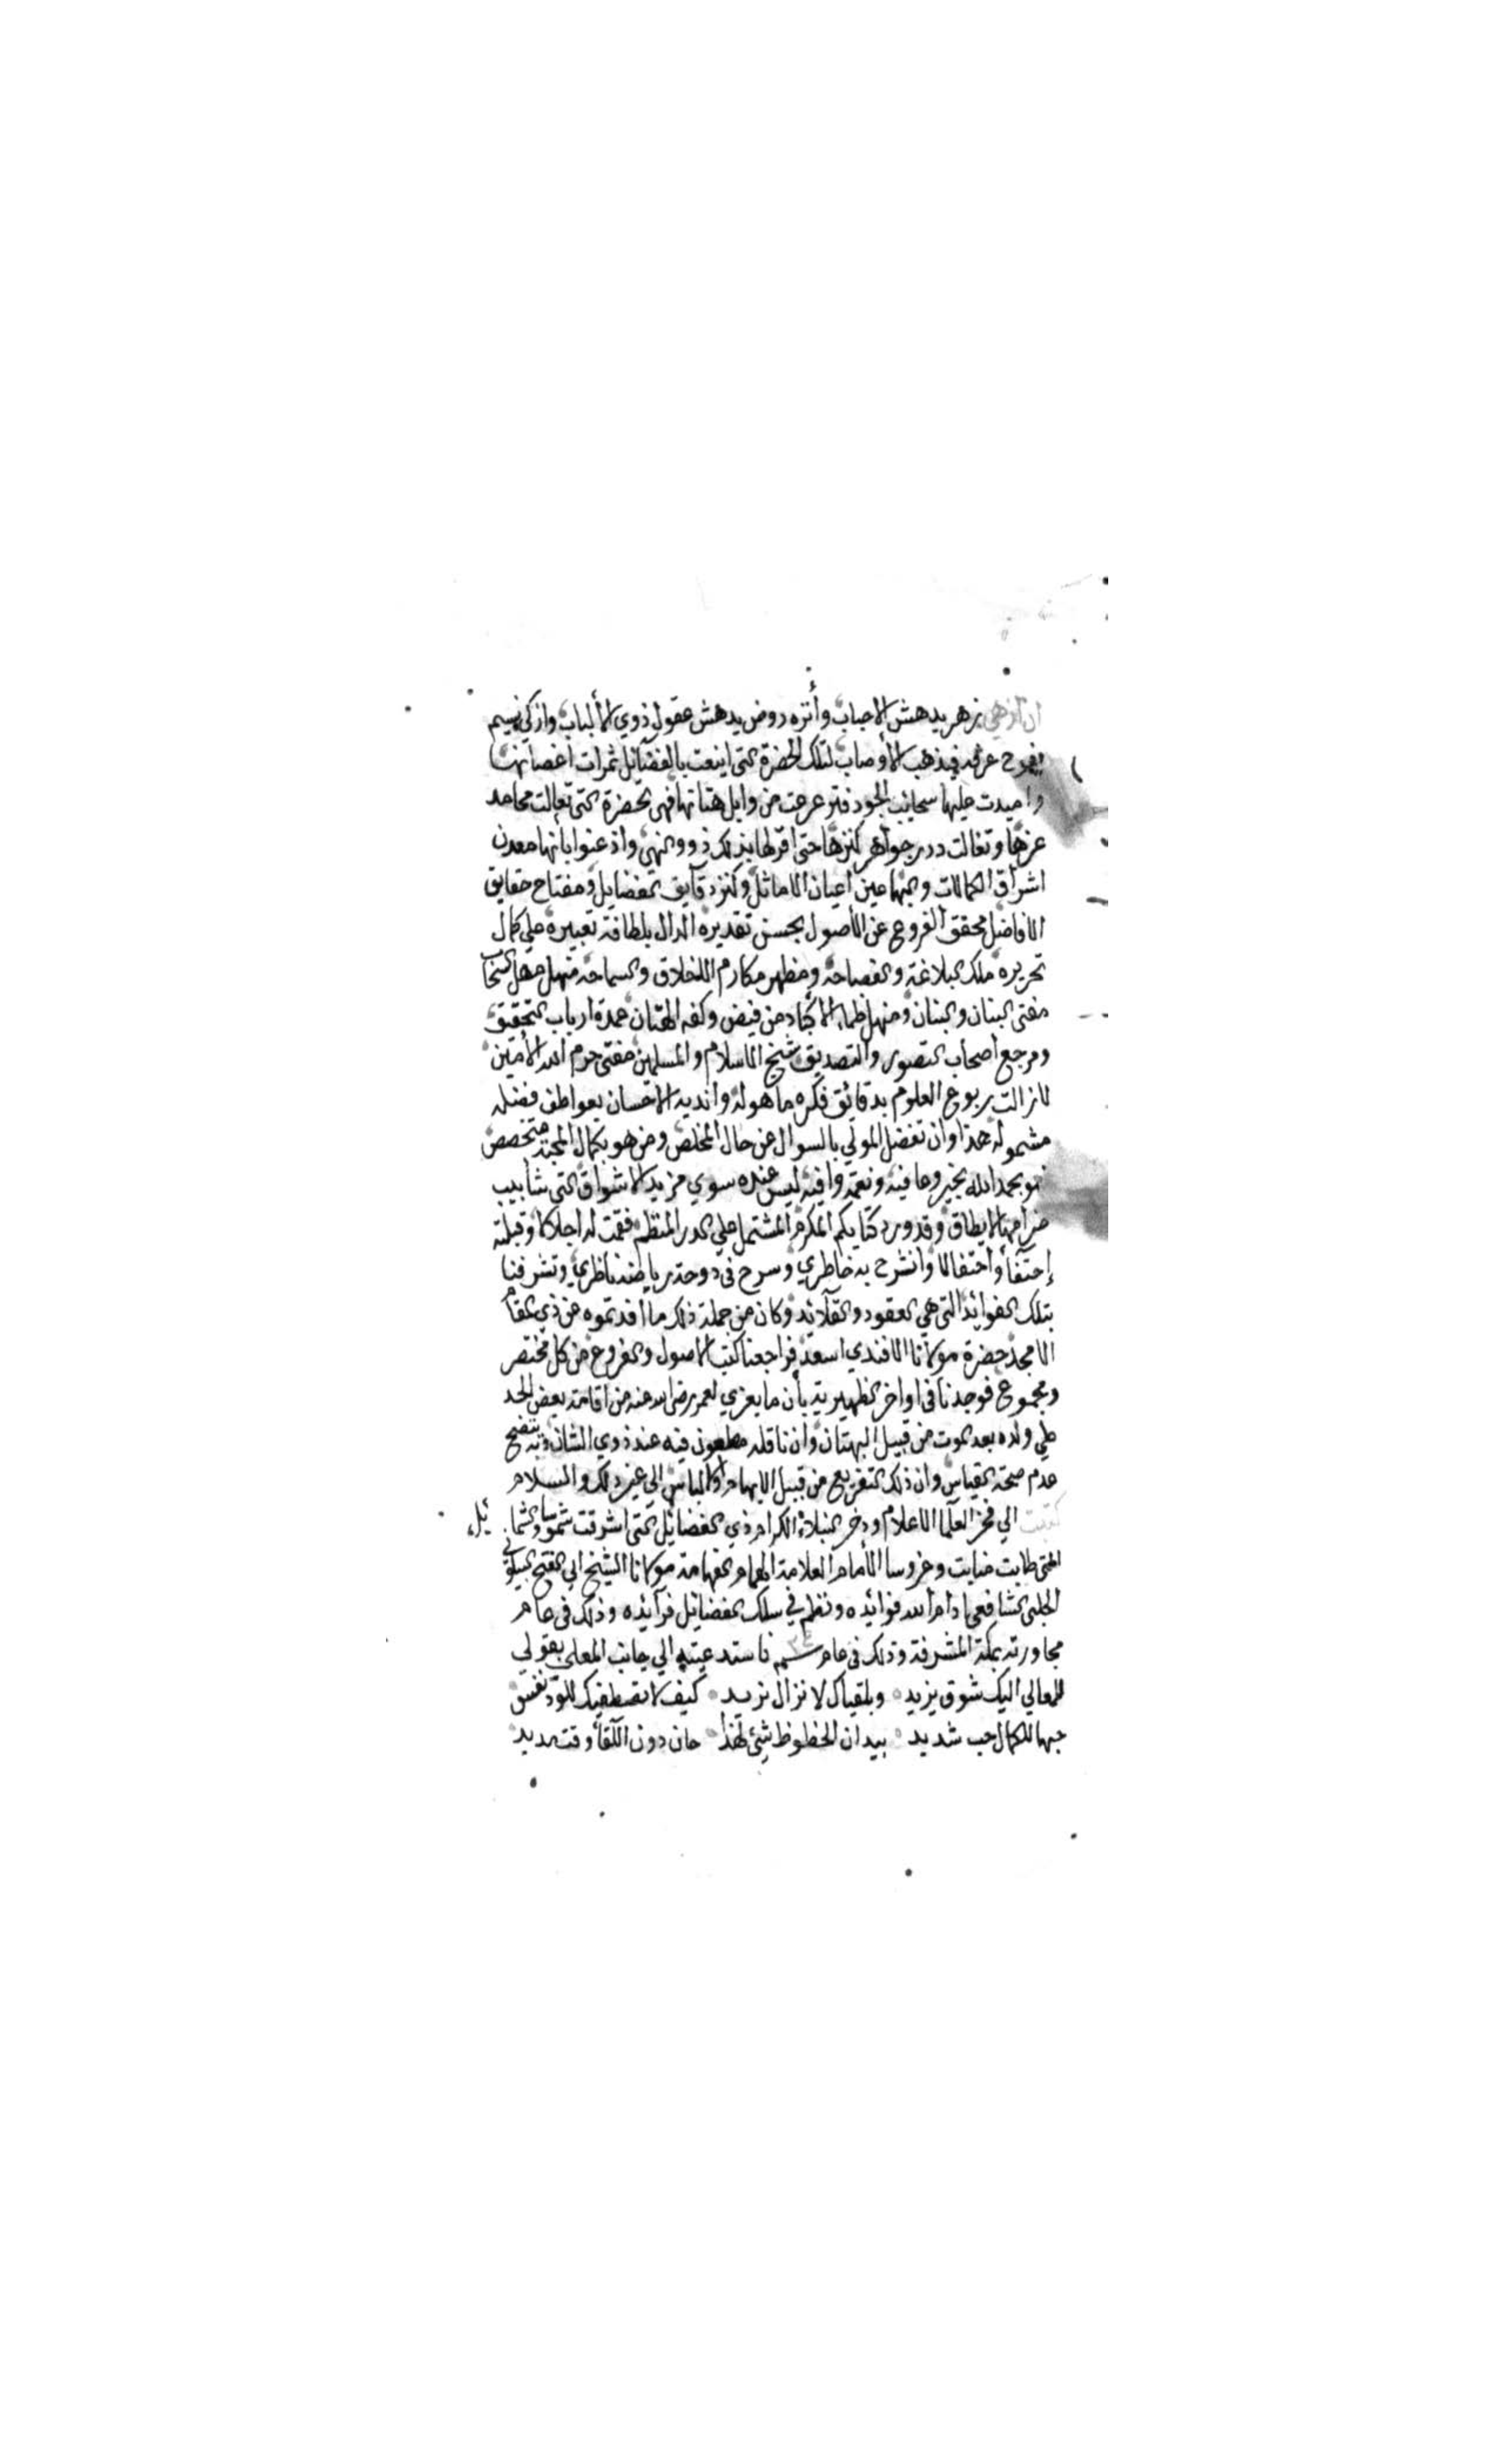 ان ازهي زهر يدهش الاحباب وأنزه روض يدهش عقول ذوي الألباب وازكي نسيم
يفوح عرفه فيذهب الأوصاب لتلك الحضرة التي اينعت بالفضائل ثمرات اغصانها
عليها سحائب الجود فترعرعت من وابل هتانها فهي الحضرة التي تعالت محامد
عزها وتغالت درر جواهر كنزها حتى اقر لها بذلك ذووا النهي واذعنوا بأنها معدن
اشراق الكمالات وانها عين اعيان الاماثل وكنز دقايق الفضايل ومفتاح حقايق
الافاضل محقق الفروع عن الأصول بحسن تقديره الدال بلطافة تعبيره علي كمال
تحريره ملك البلاغة والفصاحة ومظهر مكارم الاخلاق والسماحة منهل
مفتي البنان والبنان ومنهل ظماء الأكباد من فيض وكفه الهتان عمدة ارباب التحقيق
ومرجع أصحاب التصور والتصديق شيخ الاسلام والمسلمين مفتي حرم الله الأمين
لازالت ربوع العلوم بدقائق فكره ماهولة واندية الاحسان بعواطف فضله
مشمولة هذا وان تفضل المولي بالسوال عن حال المخلص ومن هو بكمال المحبة متخصص
فهو بحمد الله بخير وعافيه ونعمة وافيه ليس عنده سوي مزيد الاشواق التي شابيب
ضرامها لا يطاق وقد ورد كتابكم المكرم المشتمل علي الدر المنظم فقمت له اجلالا وقبلته
إحتفأ واحتفالا وانشرح به خاطري وسرح في دوحة رياضه ناظري وتشرفنا
بتلك الفوائد التي هي العقود والقلائد وكان من جملة ذلك ما أفدتموه عن ذي المقام
الامجد حضرة مولانا الافندي اسعد فراجعنا كتب الاصول والفروع من كل مختصر
ومجموع فوجدنا في اواخر الظهيرية بأن ما يعزي لعمر رضي الله عنه من اقامة بعض الحد
علي ولده بعد الموت من قبيل البهتان وان ناقله مطعون فيه عند ذوي الشان وبه يتضح
عدم صحة القياس وان ذلك التفريع من قبيل الايهام والالباس الي غير ذلك والسلام
كتبت الي فخر العلما الاعلام وذخر النبلاء الكرام ذي الفضائل التي اشرقت شموسا والشمائل
التي طابت وغروسا الأمام العلامة الهمام الفهامة مولانا الشيخ ابي الفتح البيلوني
الحلبي الشافعي ادام الله فوائده ونظم في سلك الفضائل فرآئده وذلك في عام
مجاورته بمكة المشرفة وذلك في عام فاستدعيته الي جانب المعلي بقولي
للمعالي اليك شوق يزيد وبلقياك لا نزال نريد كيف لا تصطفيك للود نفس
حبها للكمال حب شديد بيد ان الحظوظ شئ لهذا حان دون اللقأ وقت مديد